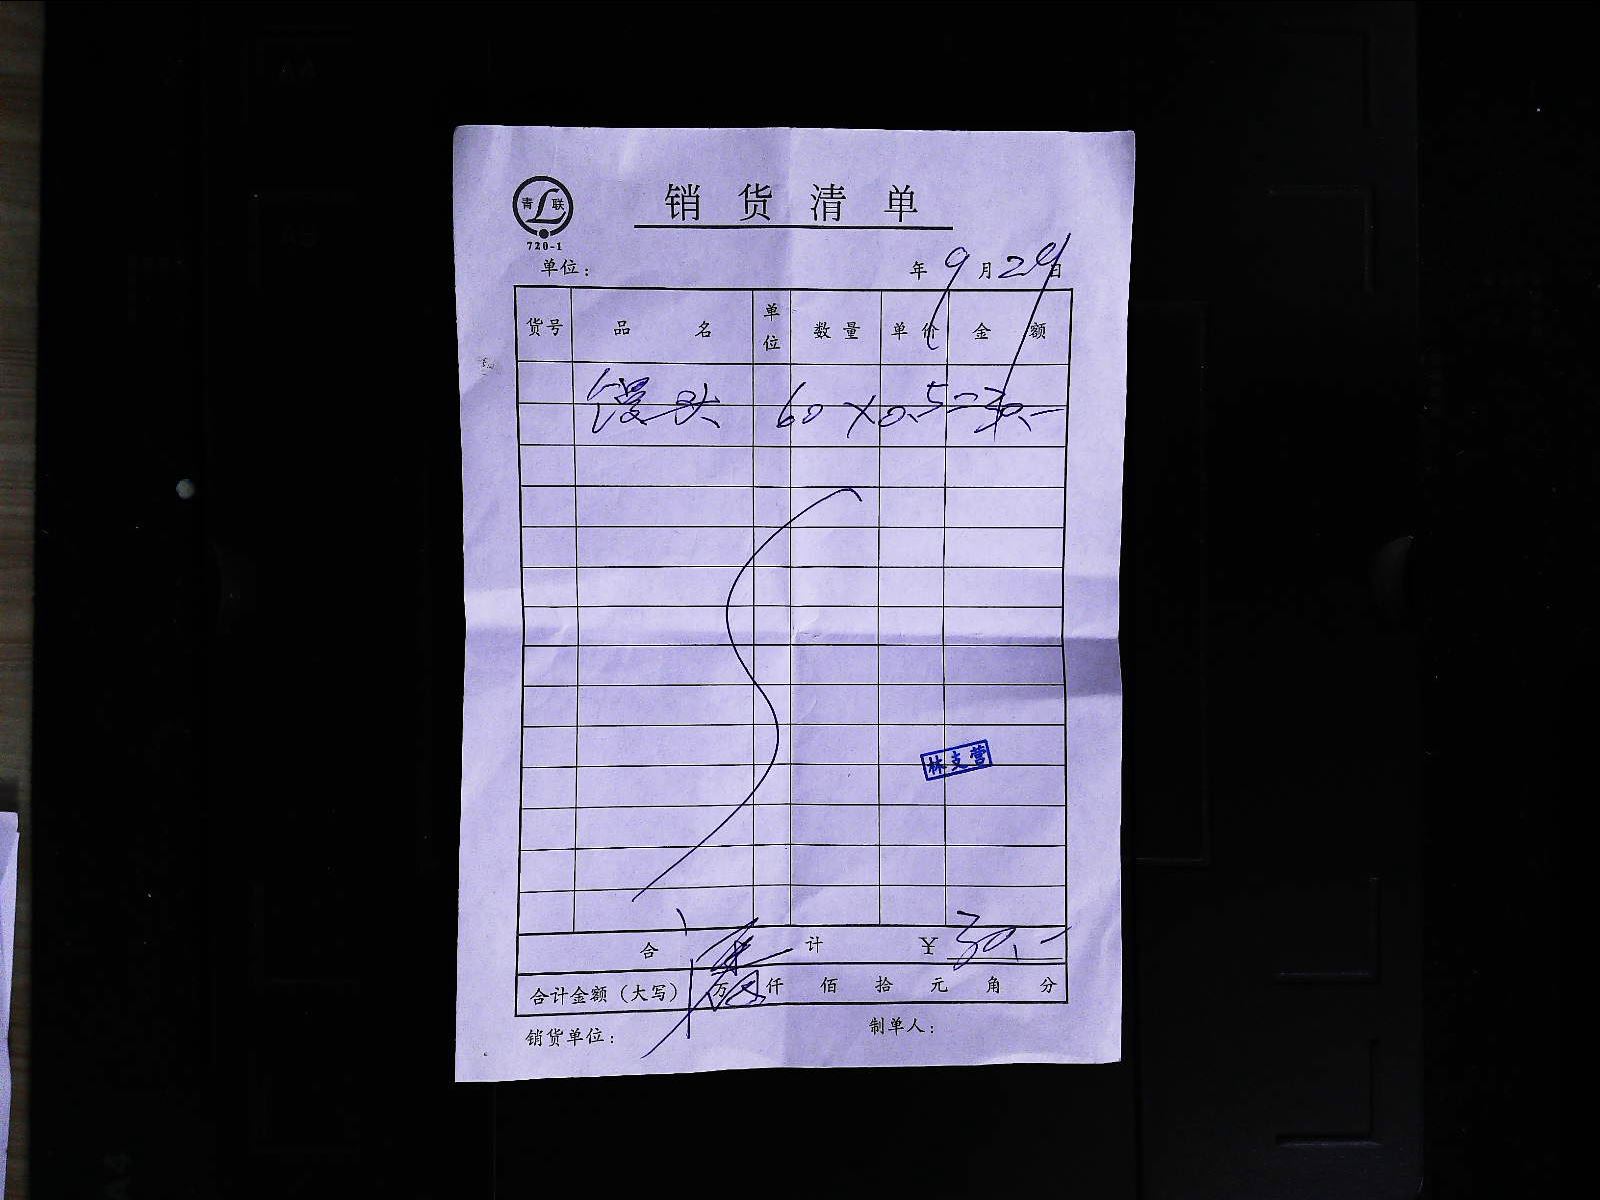 销货清单
青 联
720-1
单位：
年9月29日
货号 品名 单位 数量 单价 金额
馒头 60×0.5=30.-
林支营
合计 ¥30.-
合计金额（大写） 万 仟 佰 拾 元 角 分
销货单位： 制单人：